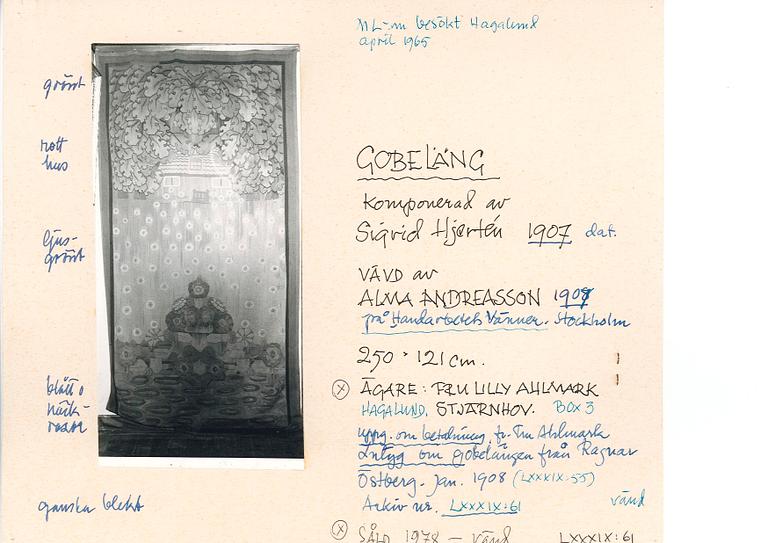 ML-m besökt Hagalund
april 1965
grönt
rött
hus
ljus-
grönt
blått o
näck-
rosor
ganska blekt
GOBELÄNG
Komponerad av
Sigrid Hjertén 1907 dat.
VÄVD av
ALMA ANDREASSON 1907
på Handarbetets Vänner. Stockholm
250 × 121 cm.
ÄGARE: FRU LILLY AHLMARK
HAGALUND, STJÄRNHOV. BOX 3
uppg. om fr. Fru Ahlmark
Intyg om gobelängen från Ragnar
Östberg. Jan. 1908 (LXXXIX:55)
Arkiv nr. LXXXIX:61 vänd
SÅLD 1978 — vänd LXXXIX:61